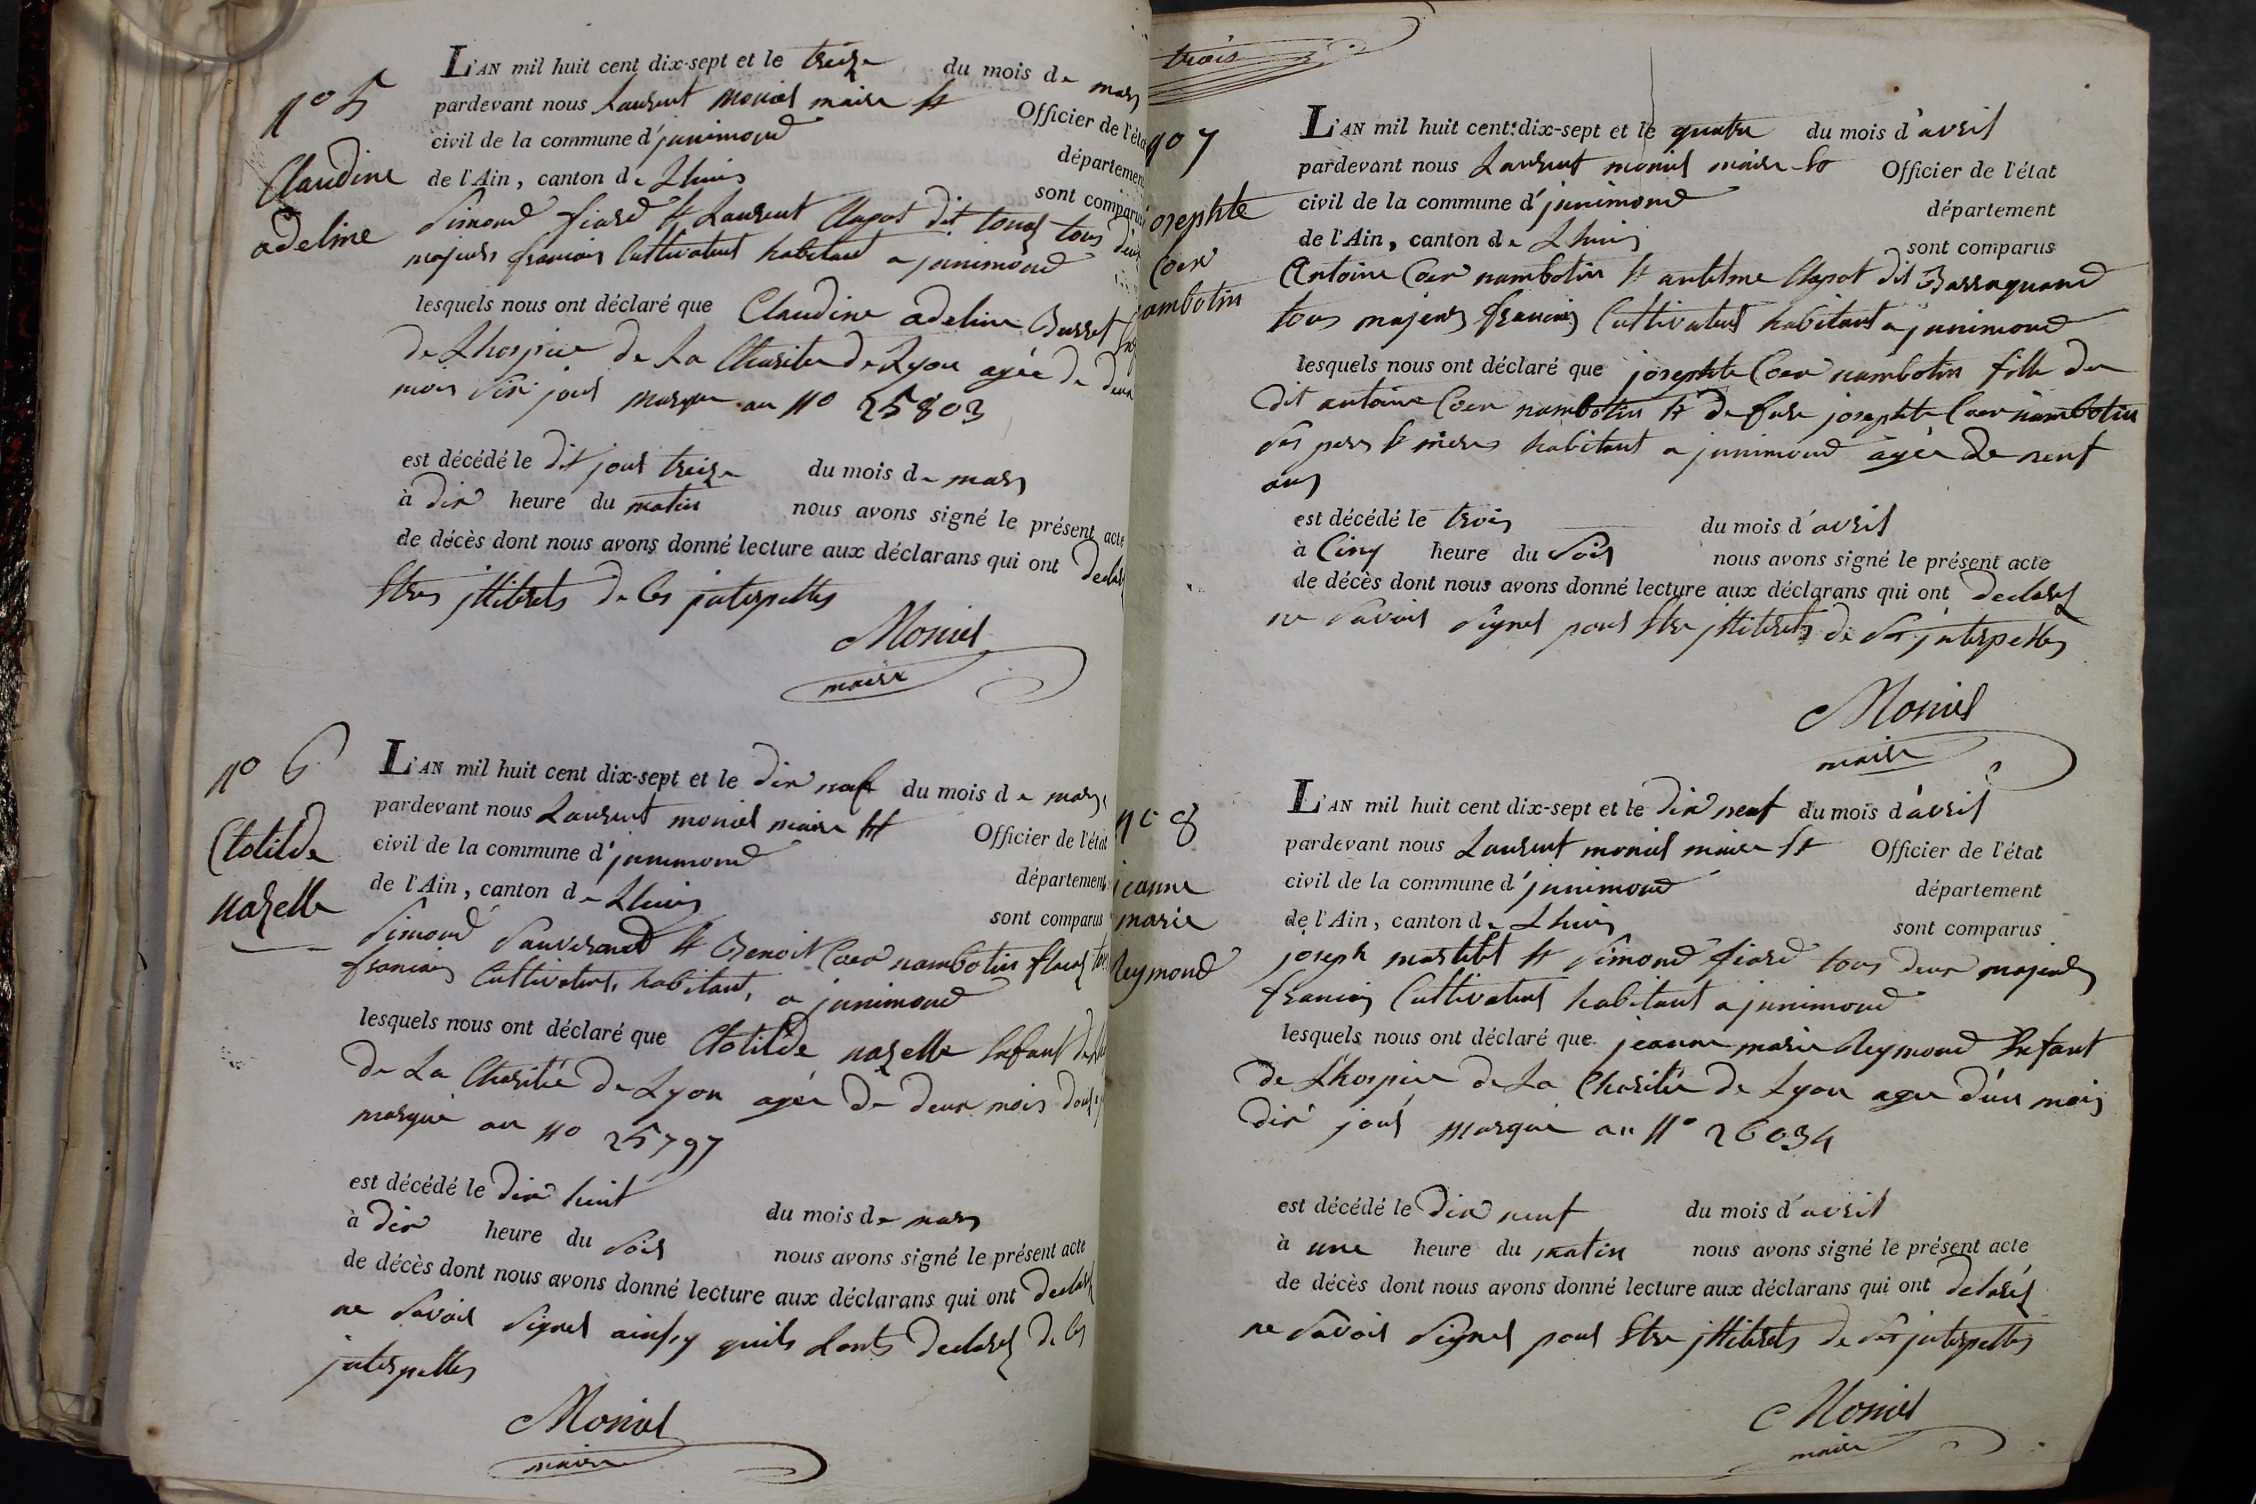 n° 5
Claudine
adeline
L'AN mil huit cent dix-sept et le treize du mois de mars
pardevant nous Laurent moniel maire et Officier de l'état
civil de la commune d'junimond département
de l'Ain, canton de Lhuis sont comparus
Simond fiard et Laurent Chapot dit tous deux
majeurs francais Cultivateurs habitant a junimond
lesquels nous ont déclaré que Claudine adeline Busset
de Lhospice de La Charitee de Lyon agée de deux
mois dix jours marque au N° 25803
est décédé le dit jour treize du mois de mars
à dix heure du matin nous avons signé le présent acte
de décès dont nous avons donné lecture aux déclarans qui ont
Etres jlliterets de Ces jnterpelles
Moniel
maire
n° 6
Clotilde
nazelle
L'AN mil huit cent dix-sept et le dix neuf du mois de mars
pardevant nous Laurent moniel maire et Officier de l'état
civil de la commune d'junimond département
de l'Ain, canton de Lhuis sont comparus
Simond et Benoit Coer nambotin
francais Cultivateurs, habitant, a junimond
lesquels nous ont déclaré que Clotilde nazelle Enfant
de La Charitée de Lyon agée de deux mois
marqué au N° 25797
est décédé le dix huit du mois de mars
à dix heure du Soir nous avons signé le présent acte
de décès dont nous avons donné lecture aux déclarans qui ont
ne Savoir Signer ainsy quils Lonts declarez de Ces
jnterpelles
Moniel
maire
trois
n° 7
josephte
Coer
nambotin
L'AN mil huit cent dix-sept et le quatre du mois d'avril
pardevant nous Laurent moniel maire et Officier de l'état
civil de la commune d'junimond département
de l'Ain, canton de Lhuis sont comparus
Antoine Coer nambotin et antelme Chapot dit Barraquand
tous majeurs francais Cultivateurs habitant a junimond
lesquels nous ont déclaré que josephte Coer nambotin fille du
dit antoine Coer nambotin et de fue josephte Coer nambotin
Ses pere et mere habitant a junimond agée de neuf
ans
est décédé le trois du mois d'avril
à Cinq heure du Soir nous avons signé le présent acte
de décès dont nous avons donné lecture aux déclarans qui ont declarez
ne Savoir Signer pour Etre jlliterets de Ses jnterpelles
Moniel
maire
n° 8
jeanne
marie
Reymond
L'AN mil huit cent dix-sept et le dix neuf du mois d'avril
pardevant nous Laurent moniel maire et Officier de l'état
civil de la commune d'junimond département
de l'Ain, canton de Lhuis sont comparus
joseph martelet et Simond fiard tous deux majeurs
francais Cultivateurs habitant a junimond
lesquels nous ont déclaré que jeanne marie Reymond Enfant
de Lhospice de La Charitée de Lyon agée d'un mois
dix jours marqué au N° 26034
est décédé le dix neuf du mois d'avril
à une heure du matin nous avons signé le présent acte
de décès dont nous avons donné lecture aux déclarans qui ont
ne Savoir Signer pour Etre jlliterets de Ses jnterpelles
Moniel
maire